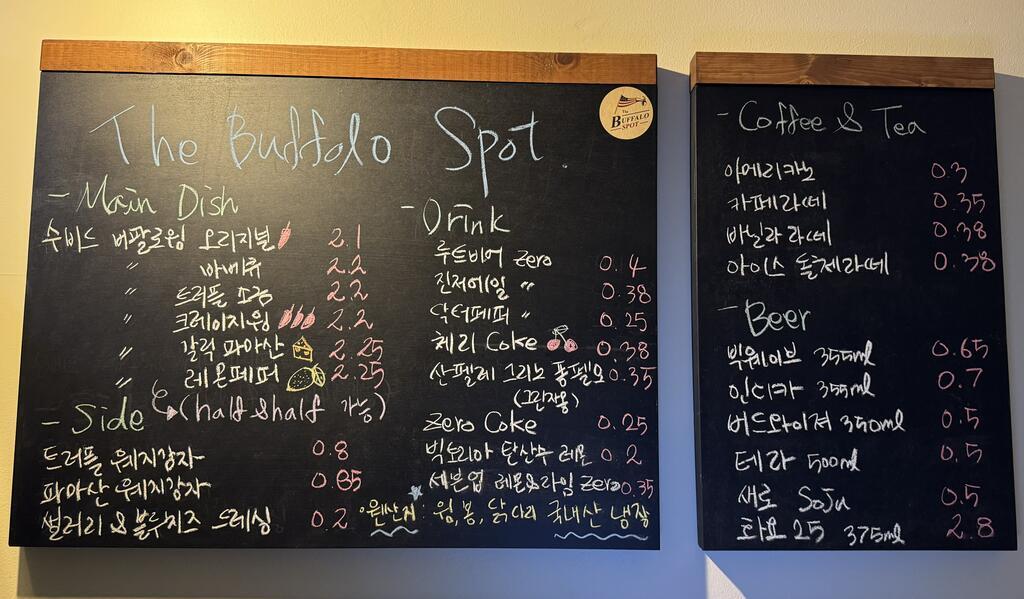 The Buffalo Spot.
The BUFFALO SPOT
- Main Dish
수비드 버팔로윙 오리지널 2.1
〃 바베큐 2.2
〃 트러플 소금 2.2
〃 크레이지윙 2.2
〃 갈릭 파마산 2.25
〃 레몬페퍼 2.25
(half & half 가능)
- Side
트러플 웨지감자 0.8
파마산 웨지감자 0.85
샐러리 & 블루치즈 드레싱 0.2
- Drink
루트비어 Zero 0.4
진저에일 〃 0.38
닥터페퍼 〃 0.25
체리 Coke 0.38
산펠레그리노 폼펠모 0.35
(그란자몽)
Zero Coke 0.25
빅토리아 탄산수 레몬 0.2
세븐업 레몬&라임 Zero 0.35
원산지 : 윙, 봉, 닭다리 국내산 냉장
- Coffee & Tea
아메리카노 0.3
카페라떼 0.35
바닐라 라떼 0.38
아이스 돌체라떼 0.38
- Beer
빅웨이브 355ml 0.65
인디카 355ml 0.7
버드와이져 350ml 0.5
테라 500ml 0.5
새로 Soju 0.5
화요 25 375ml 2.8